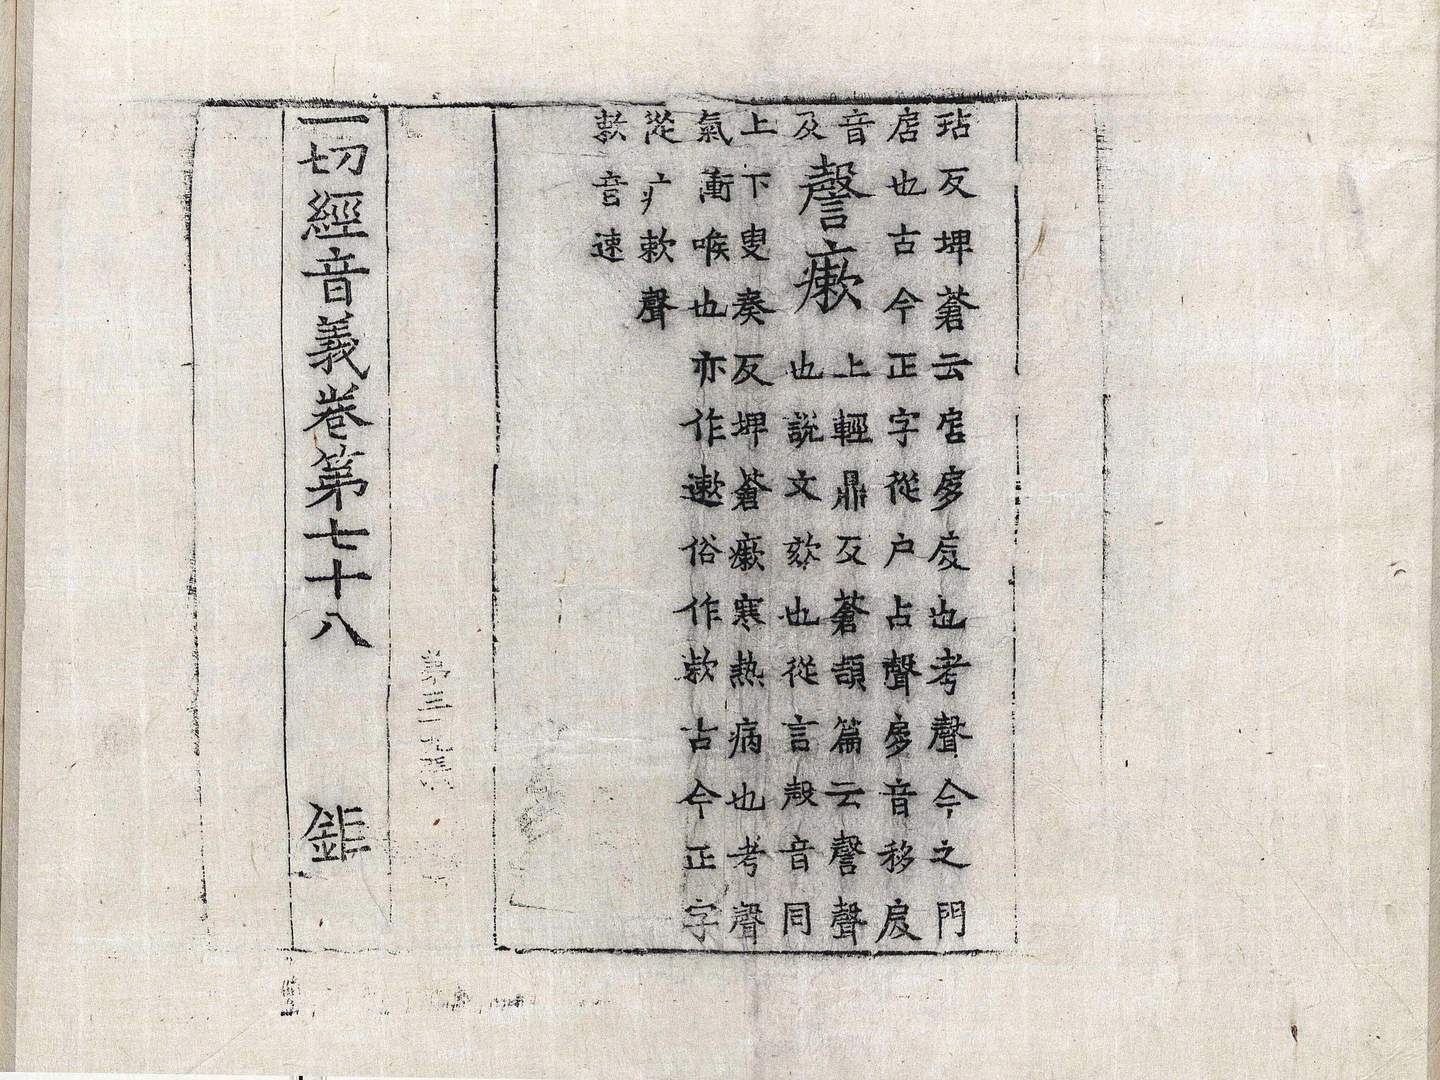 玷反埤蒼云扂扅扊也考聲今之門
扂也古今正字從户占聲扅音移扊
音
及
謦瘶
上輕鼎反蒼頡篇云謦聲
也說文欬也從言殸音同
上下叟奏反埤蒼瘶寒熱病也考聲
氣衝喉也亦作遬俗作欶古今正字
從疒欶聲
欶音速
第三十九張
一切經音義卷第七十八 鉅